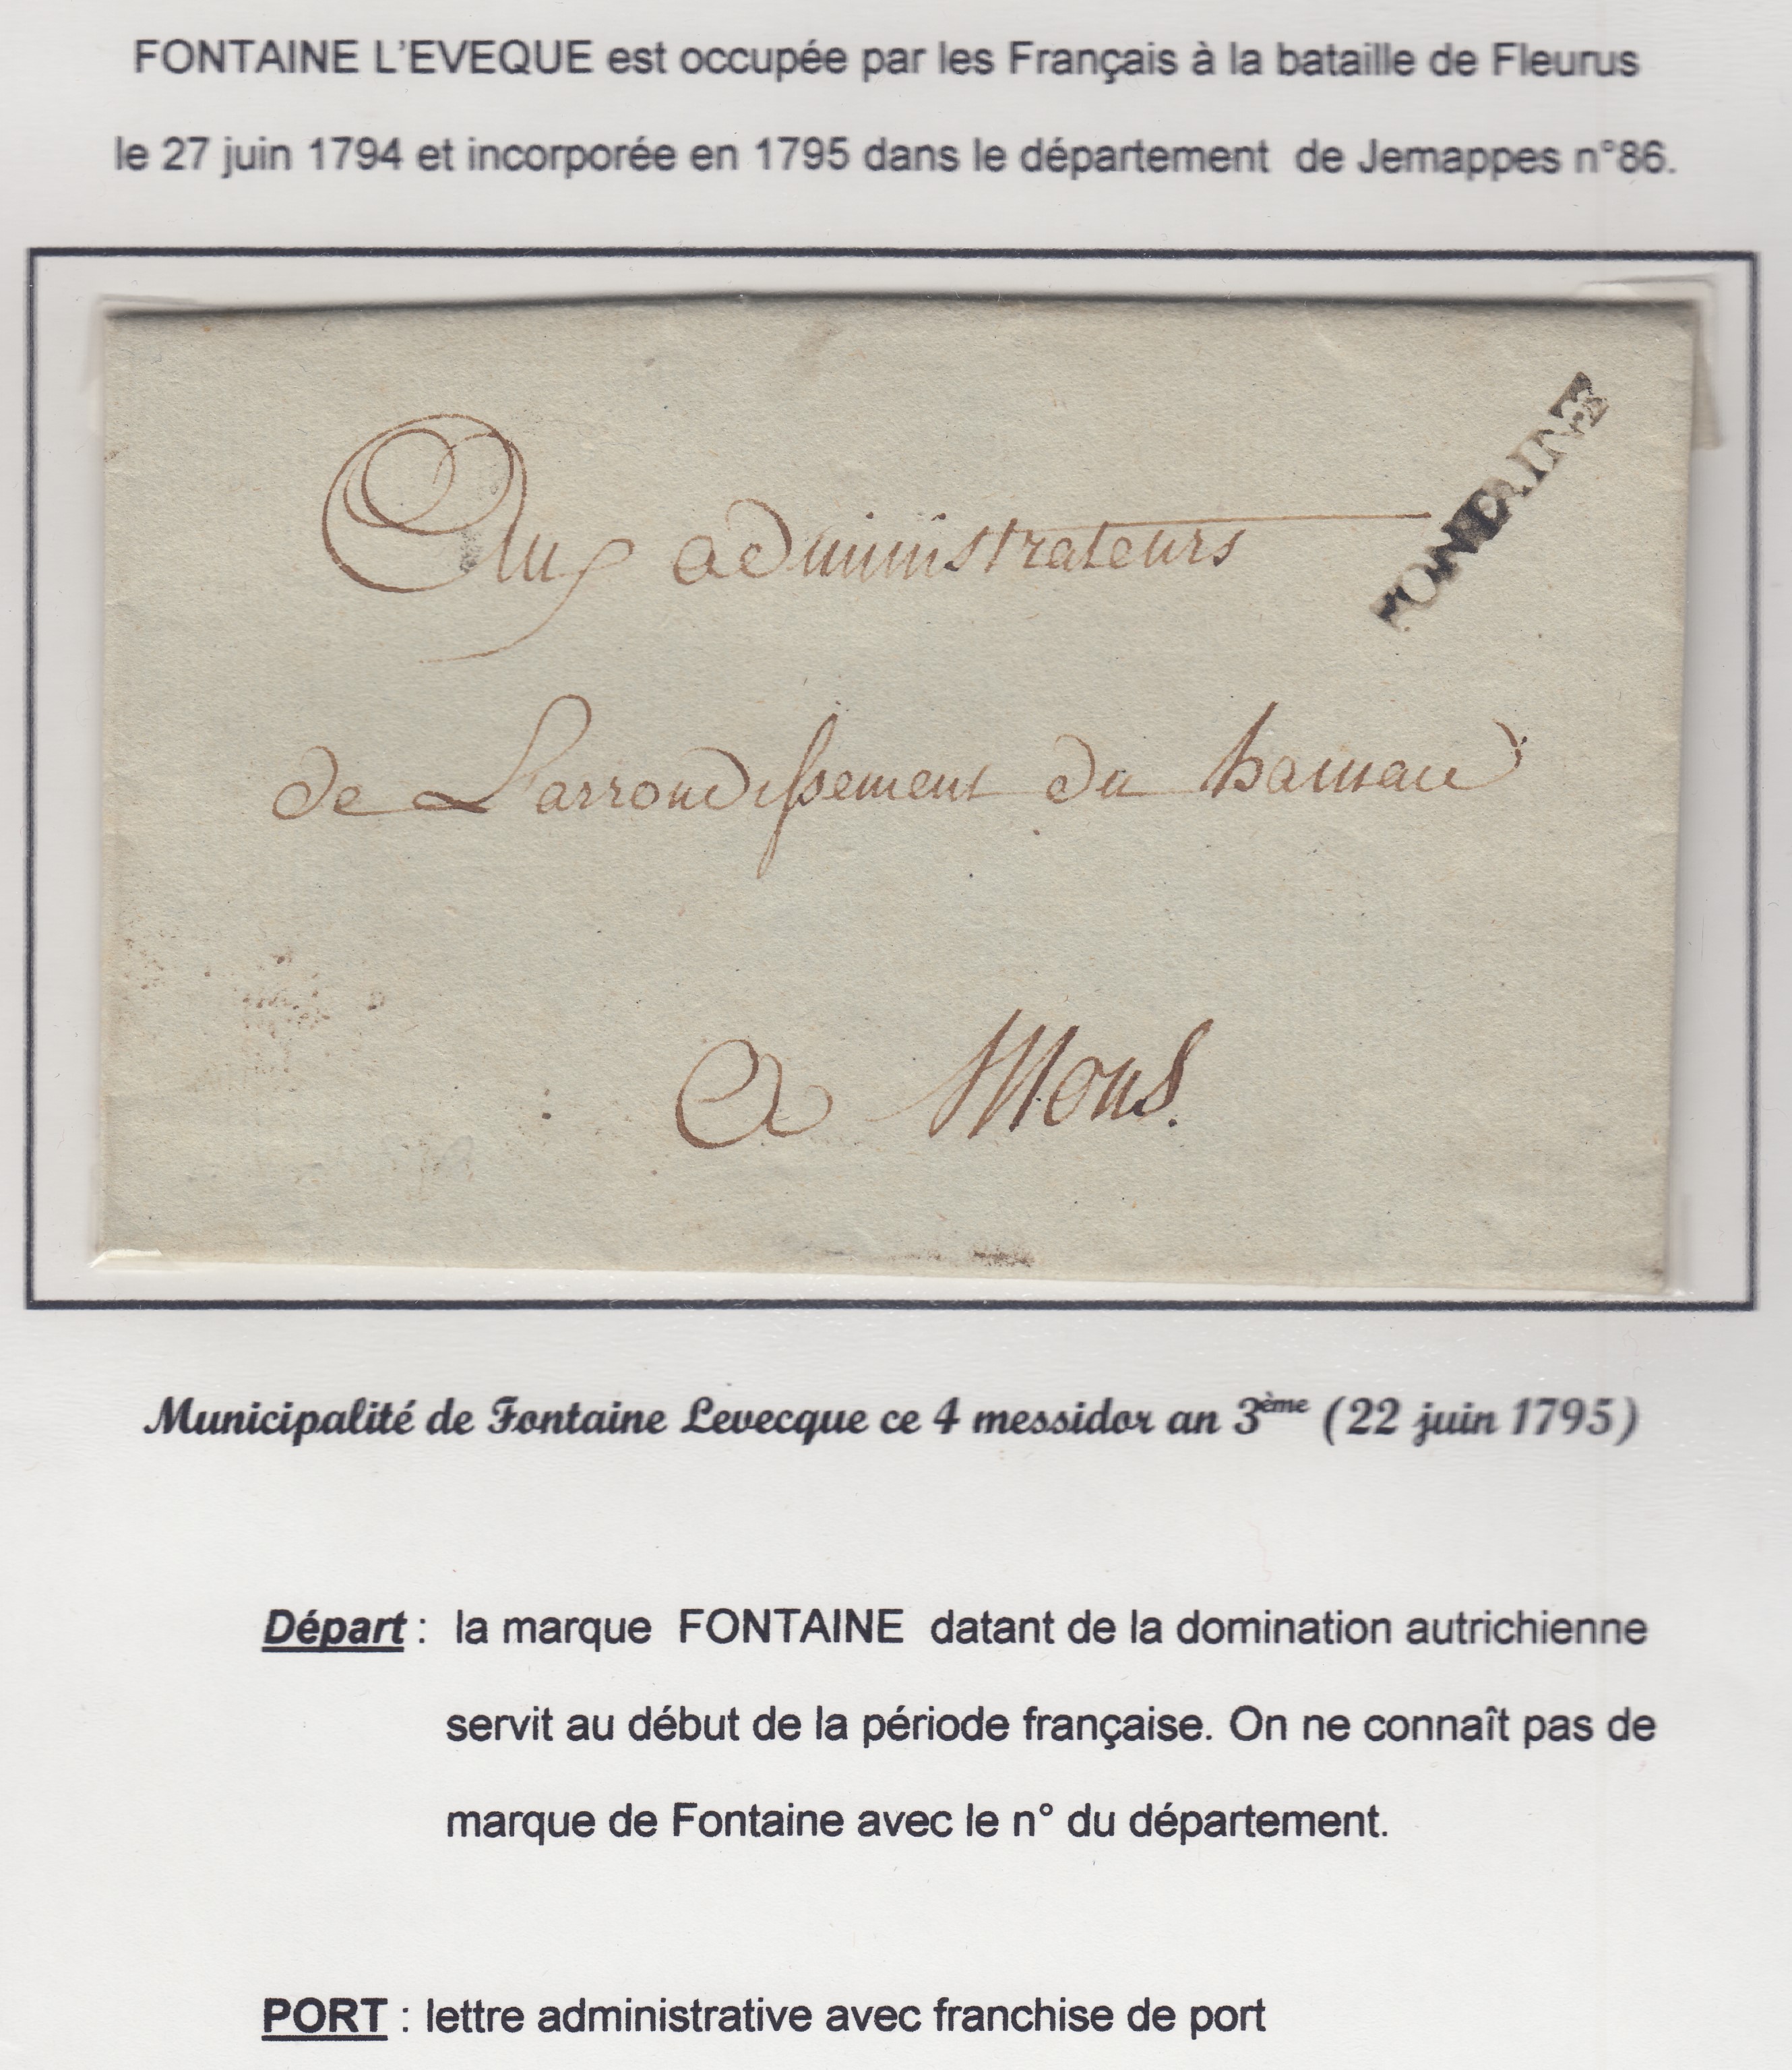 FONTAINE L'EVEQUE est occupée par les Français à la bataille de Fleurus
le 27 juin 1794 et incorporée en 1795 dans le département de Jemappes n°86.
FONTAINE
Aux administrateurs
de L'arrondissement du hainaut
a Mons.
Municipalité de Fontaine Levecque ce 4 messidor an 3ème (22 juin 1795)
Départ : la marque FONTAINE datant de la domination autrichienne
servit au début de la période française. On ne connaît pas de
marque de Fontaine avec le n° du département.
PORT : lettre administrative avec franchise de port